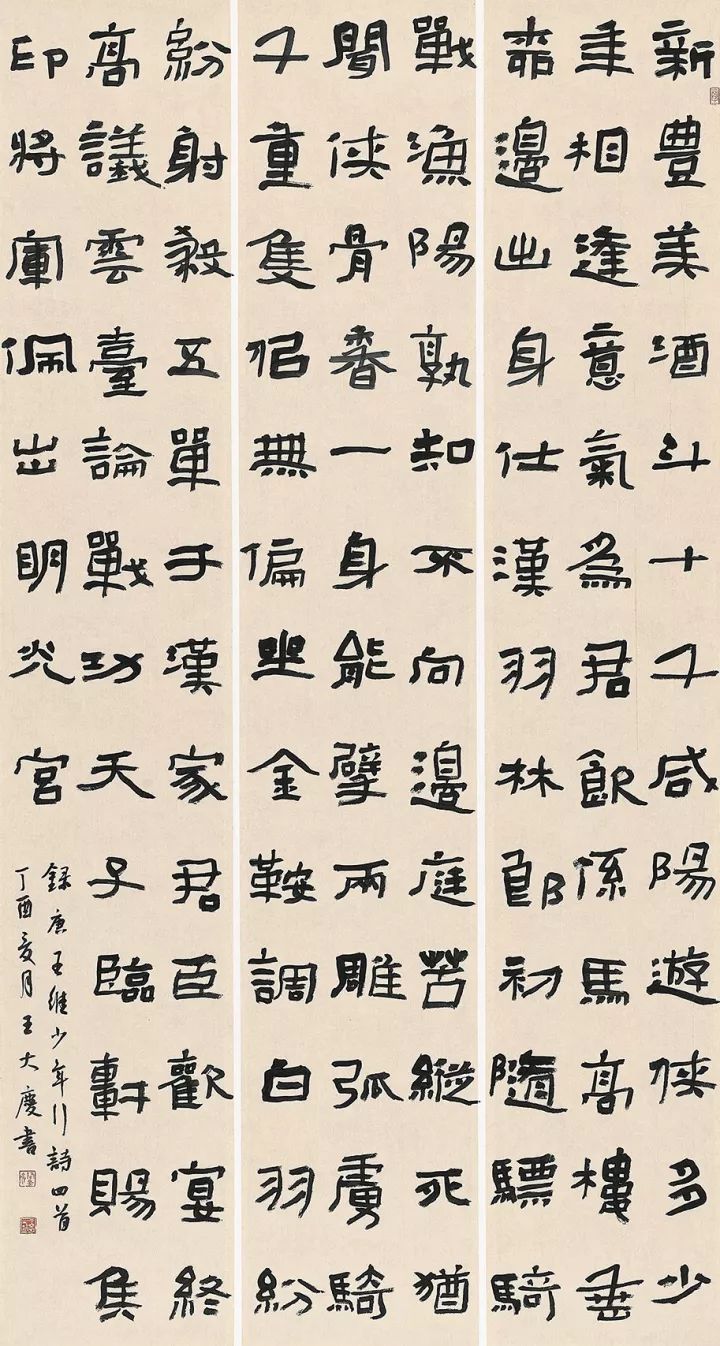 新豐美酒斗十千咸陽遊俠多少
年相逢意氣為君飲係馬高樓垂
柳邊出身仕漢羽林郎初隨驃騎
戰漁陽孰知不向邊庭苦縱死猶
聞俠骨香一身能擘兩雕弧虜騎
千重隻佀無偏坐金鞍調白羽紛
紛射殺五單于漢家君臣歡宴終
高議雲臺論戰功天子臨軒賜侯
印將軍佩出明光宮
錄唐王維少年行詩四首
丁酉夏月王大慶書